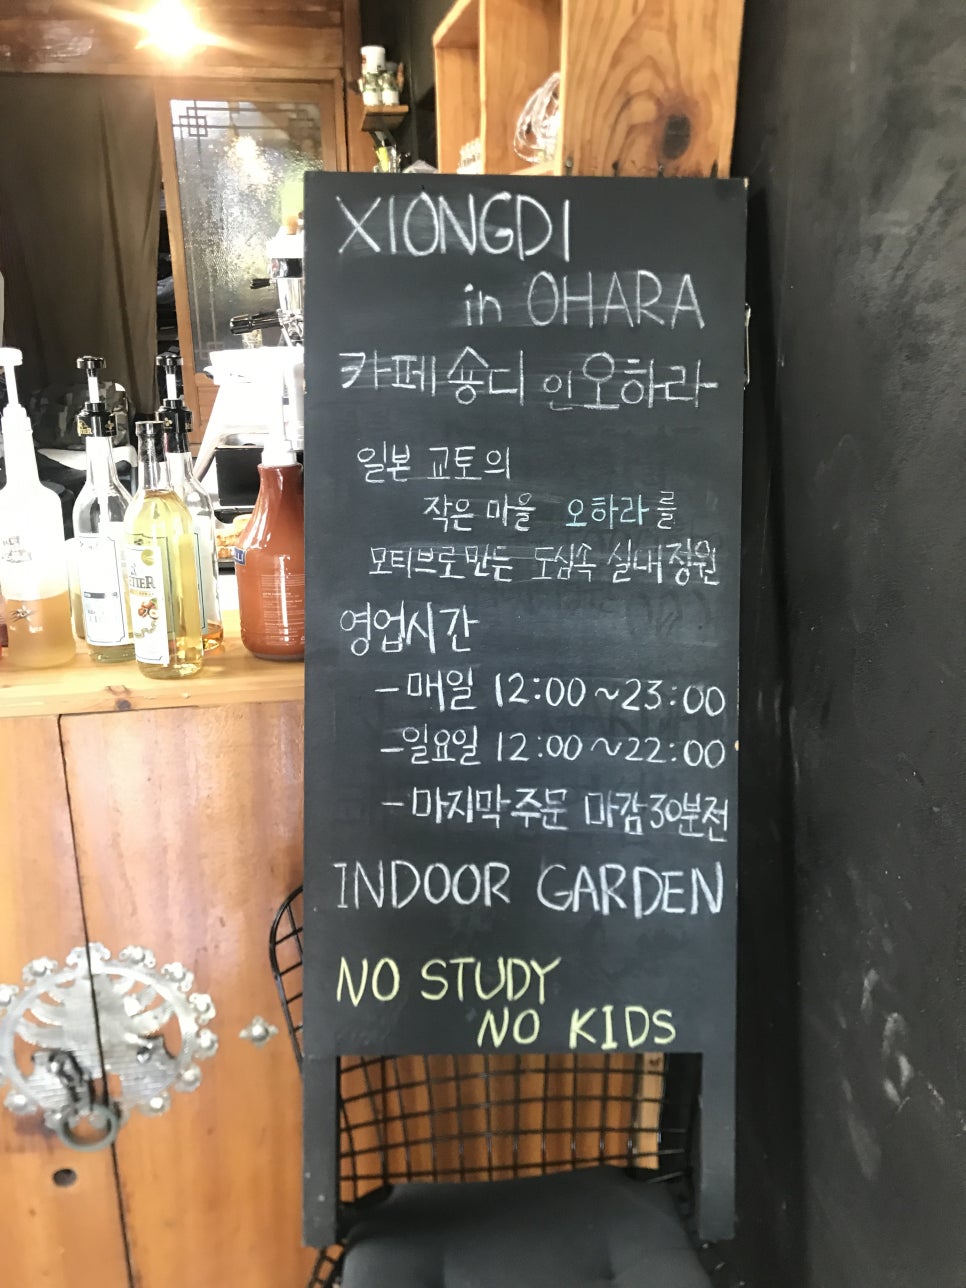 XIONGDI
in OHARA
카페 숑디 인 오하라
일본 교토의
작은 마을 오하라를
모티브로 만든 도심속 실내정원
영업시간
- 매일 12:00 ~ 23:00
- 일요일 12:00 ~ 22:00
- 마지막 주문 마감 30분전
INDOOR GARDEN
NO STUDY
NO KIDS